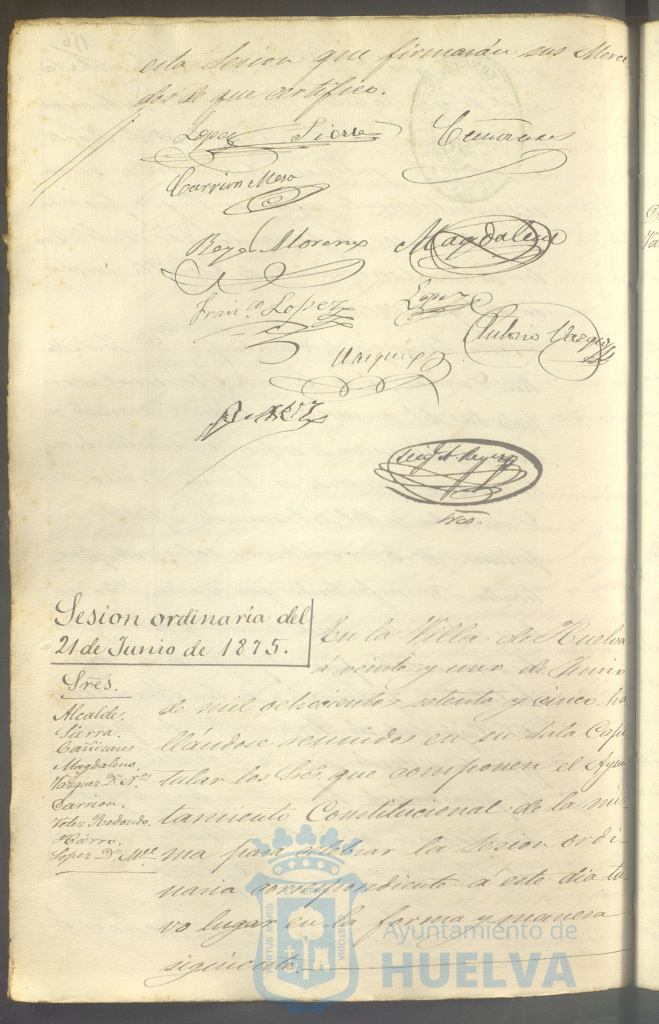 esta Sesion que firmarán sus Merce
des de que certifico.
Lopez Sierra
Cañizares
Carrion Mesa
Rey Moreno
Magdalena
Franco. Lopez
Antonio Vazquez
Vazquez
Srio.
Sesion ordinaria del
21 de Junio de 1875.
Sres.
Alcalde.
Sierra.
Cañizares
Magdaleno.
Vazquez Dn. Ns.
Carrion.
Velez Redondo.
Harro.
Lopez Dn. Mel.
En la Villa de Huelva
á veinte y uno de Junio
de mil ochocientos setenta y cinco ha
llándose reunidos en su Sala Capi
tular los Sres. que componen el Ayun
tamiento Constitucional de la mis
ma para celebrar la Sesion ordi
naria correspondiente á este dia tu
vo lugar en la forma y manera
siguiente.
Ayuntamiento de
HUELVA